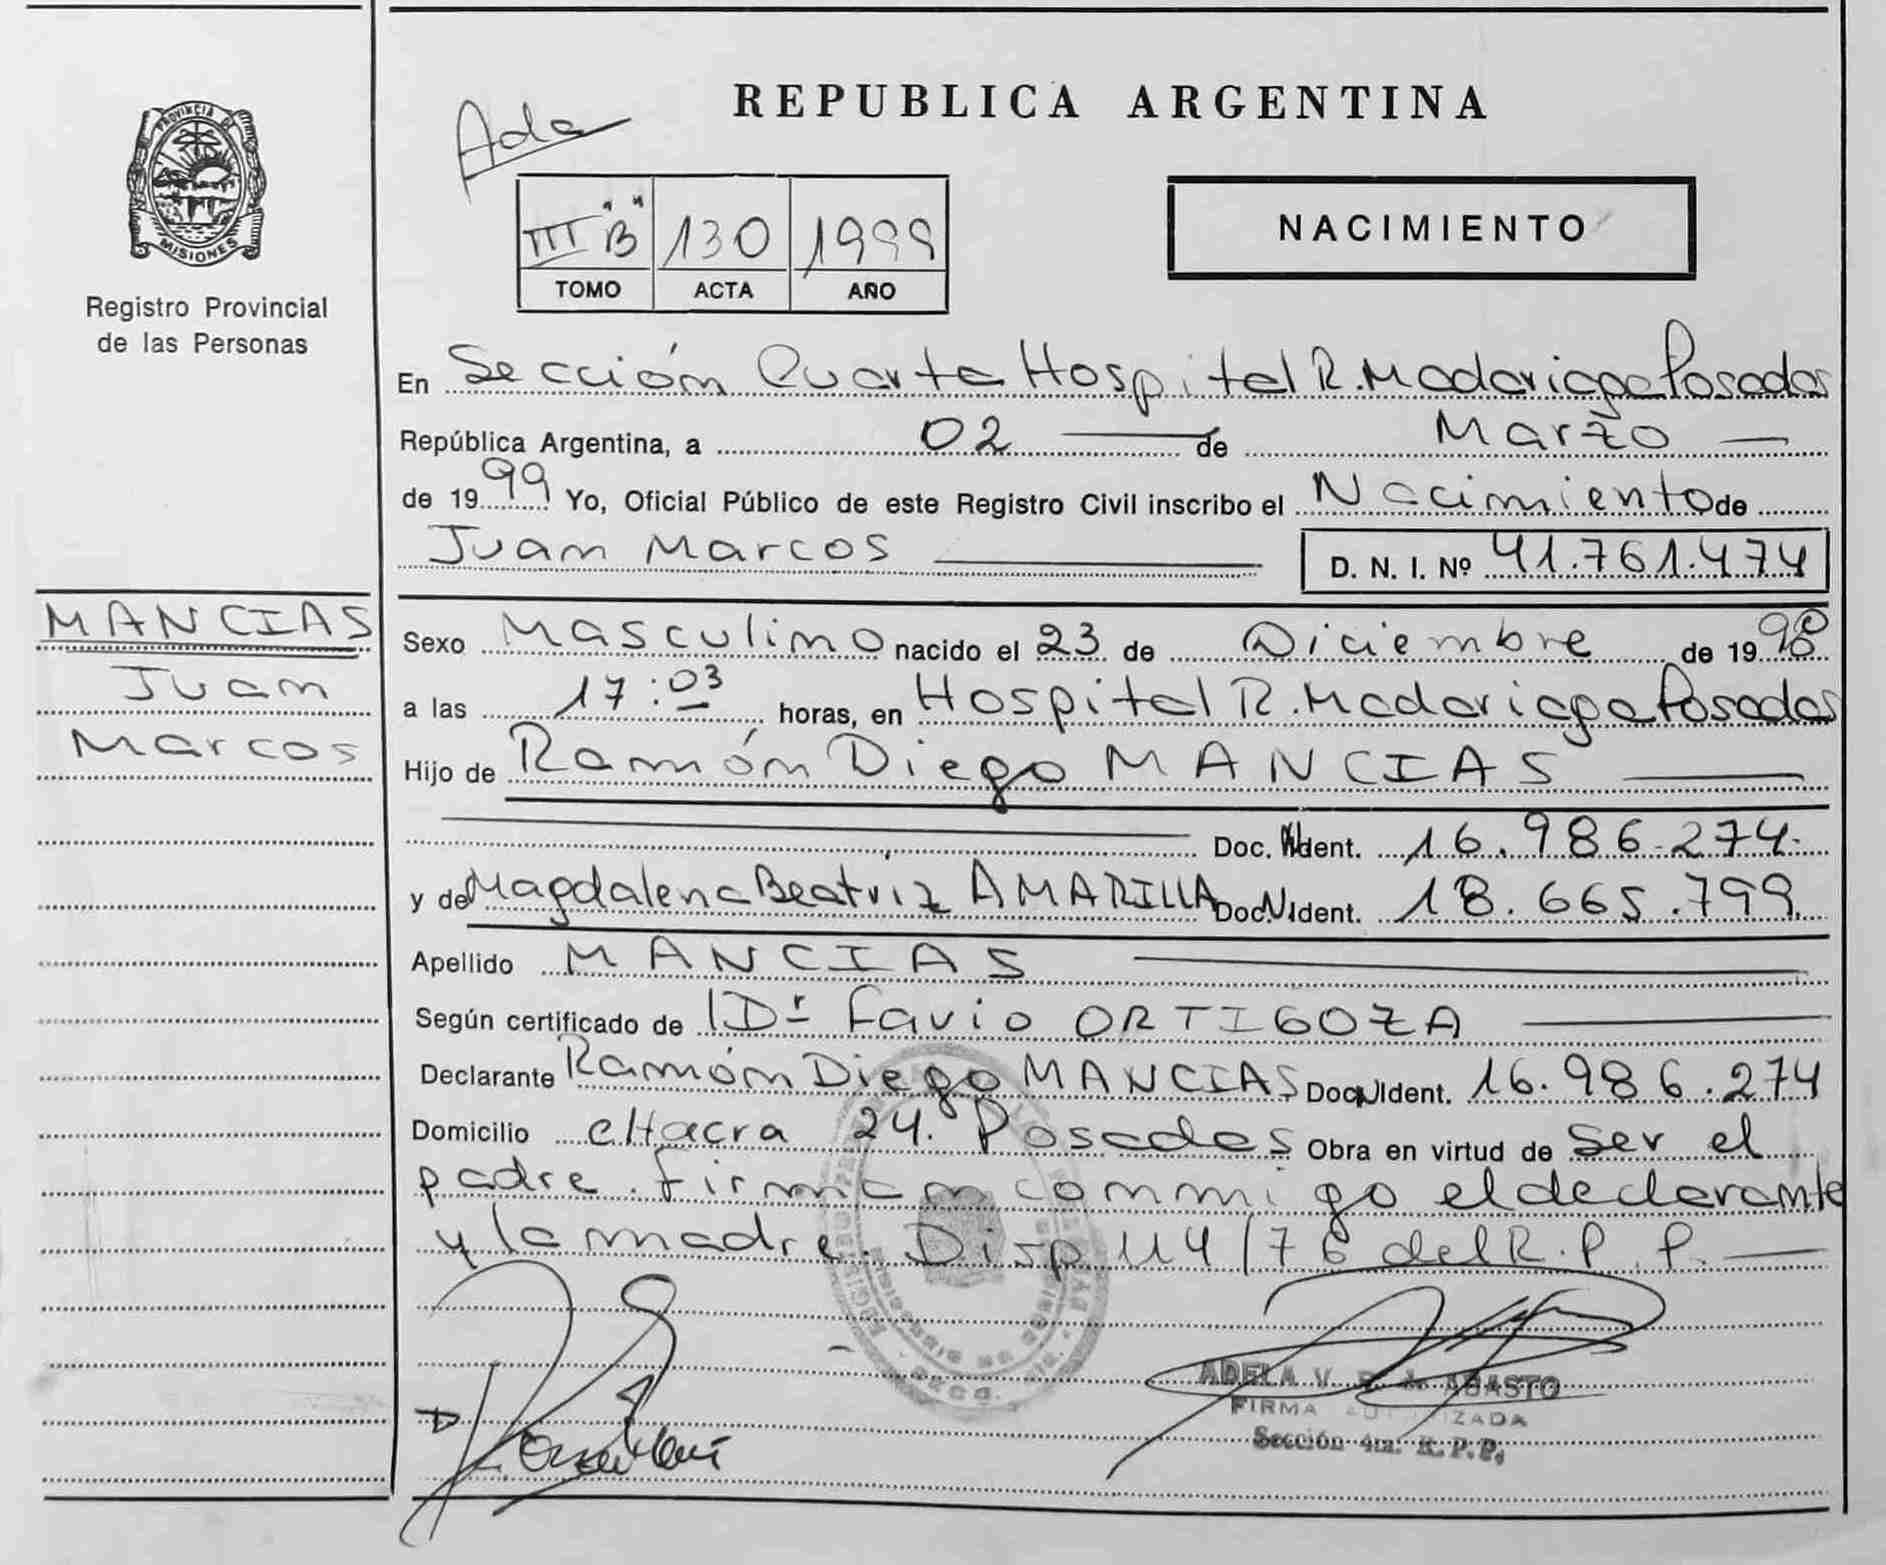 PROVINCIA DE
MISIONES
Registro Provincial
de las Personas
MANCIAS
Juan
Marcos
REPUBLICA ARGENTINA
Ada
III "B" 130 1999
TOMO ACTA AÑO
NACIMIENTO
En Sección Cuarta Hospital R. Madariaga Posadas
República Argentina, a 02 de Marzo
de 1999 Yo, Oficial Público de este Registro Civil inscribo el Nacimiento de
Juan Marcos D. N. I. Nº 41.761.474
Sexo Masculino nacido el 23 de Diciembre de 1998
a las 17:03 horas, en Hospital R. Madariaga Posadas
Hijo de Ramón Diego MANCIAS
Doc. Ident. 16.986.274.
y de Magdalena Beatriz AMARILLA Doc. Ident. 18.665.799.
Apellido MANCIAS
Según certificado de Dr Favio ORTIGOZA
Declarante Ramón Diego MANCIAS Doc. Ident. 16.986.274
Domicilio cHacra 24. Posadas Obra en virtud de Ser el
padre. firman conmigo el declarante
y la madre. Disp 114/76 del R.P.P.
ADELA V. de ABASTO
FIRMA AUTORIZADA
Sección 4ta. R.P.P.